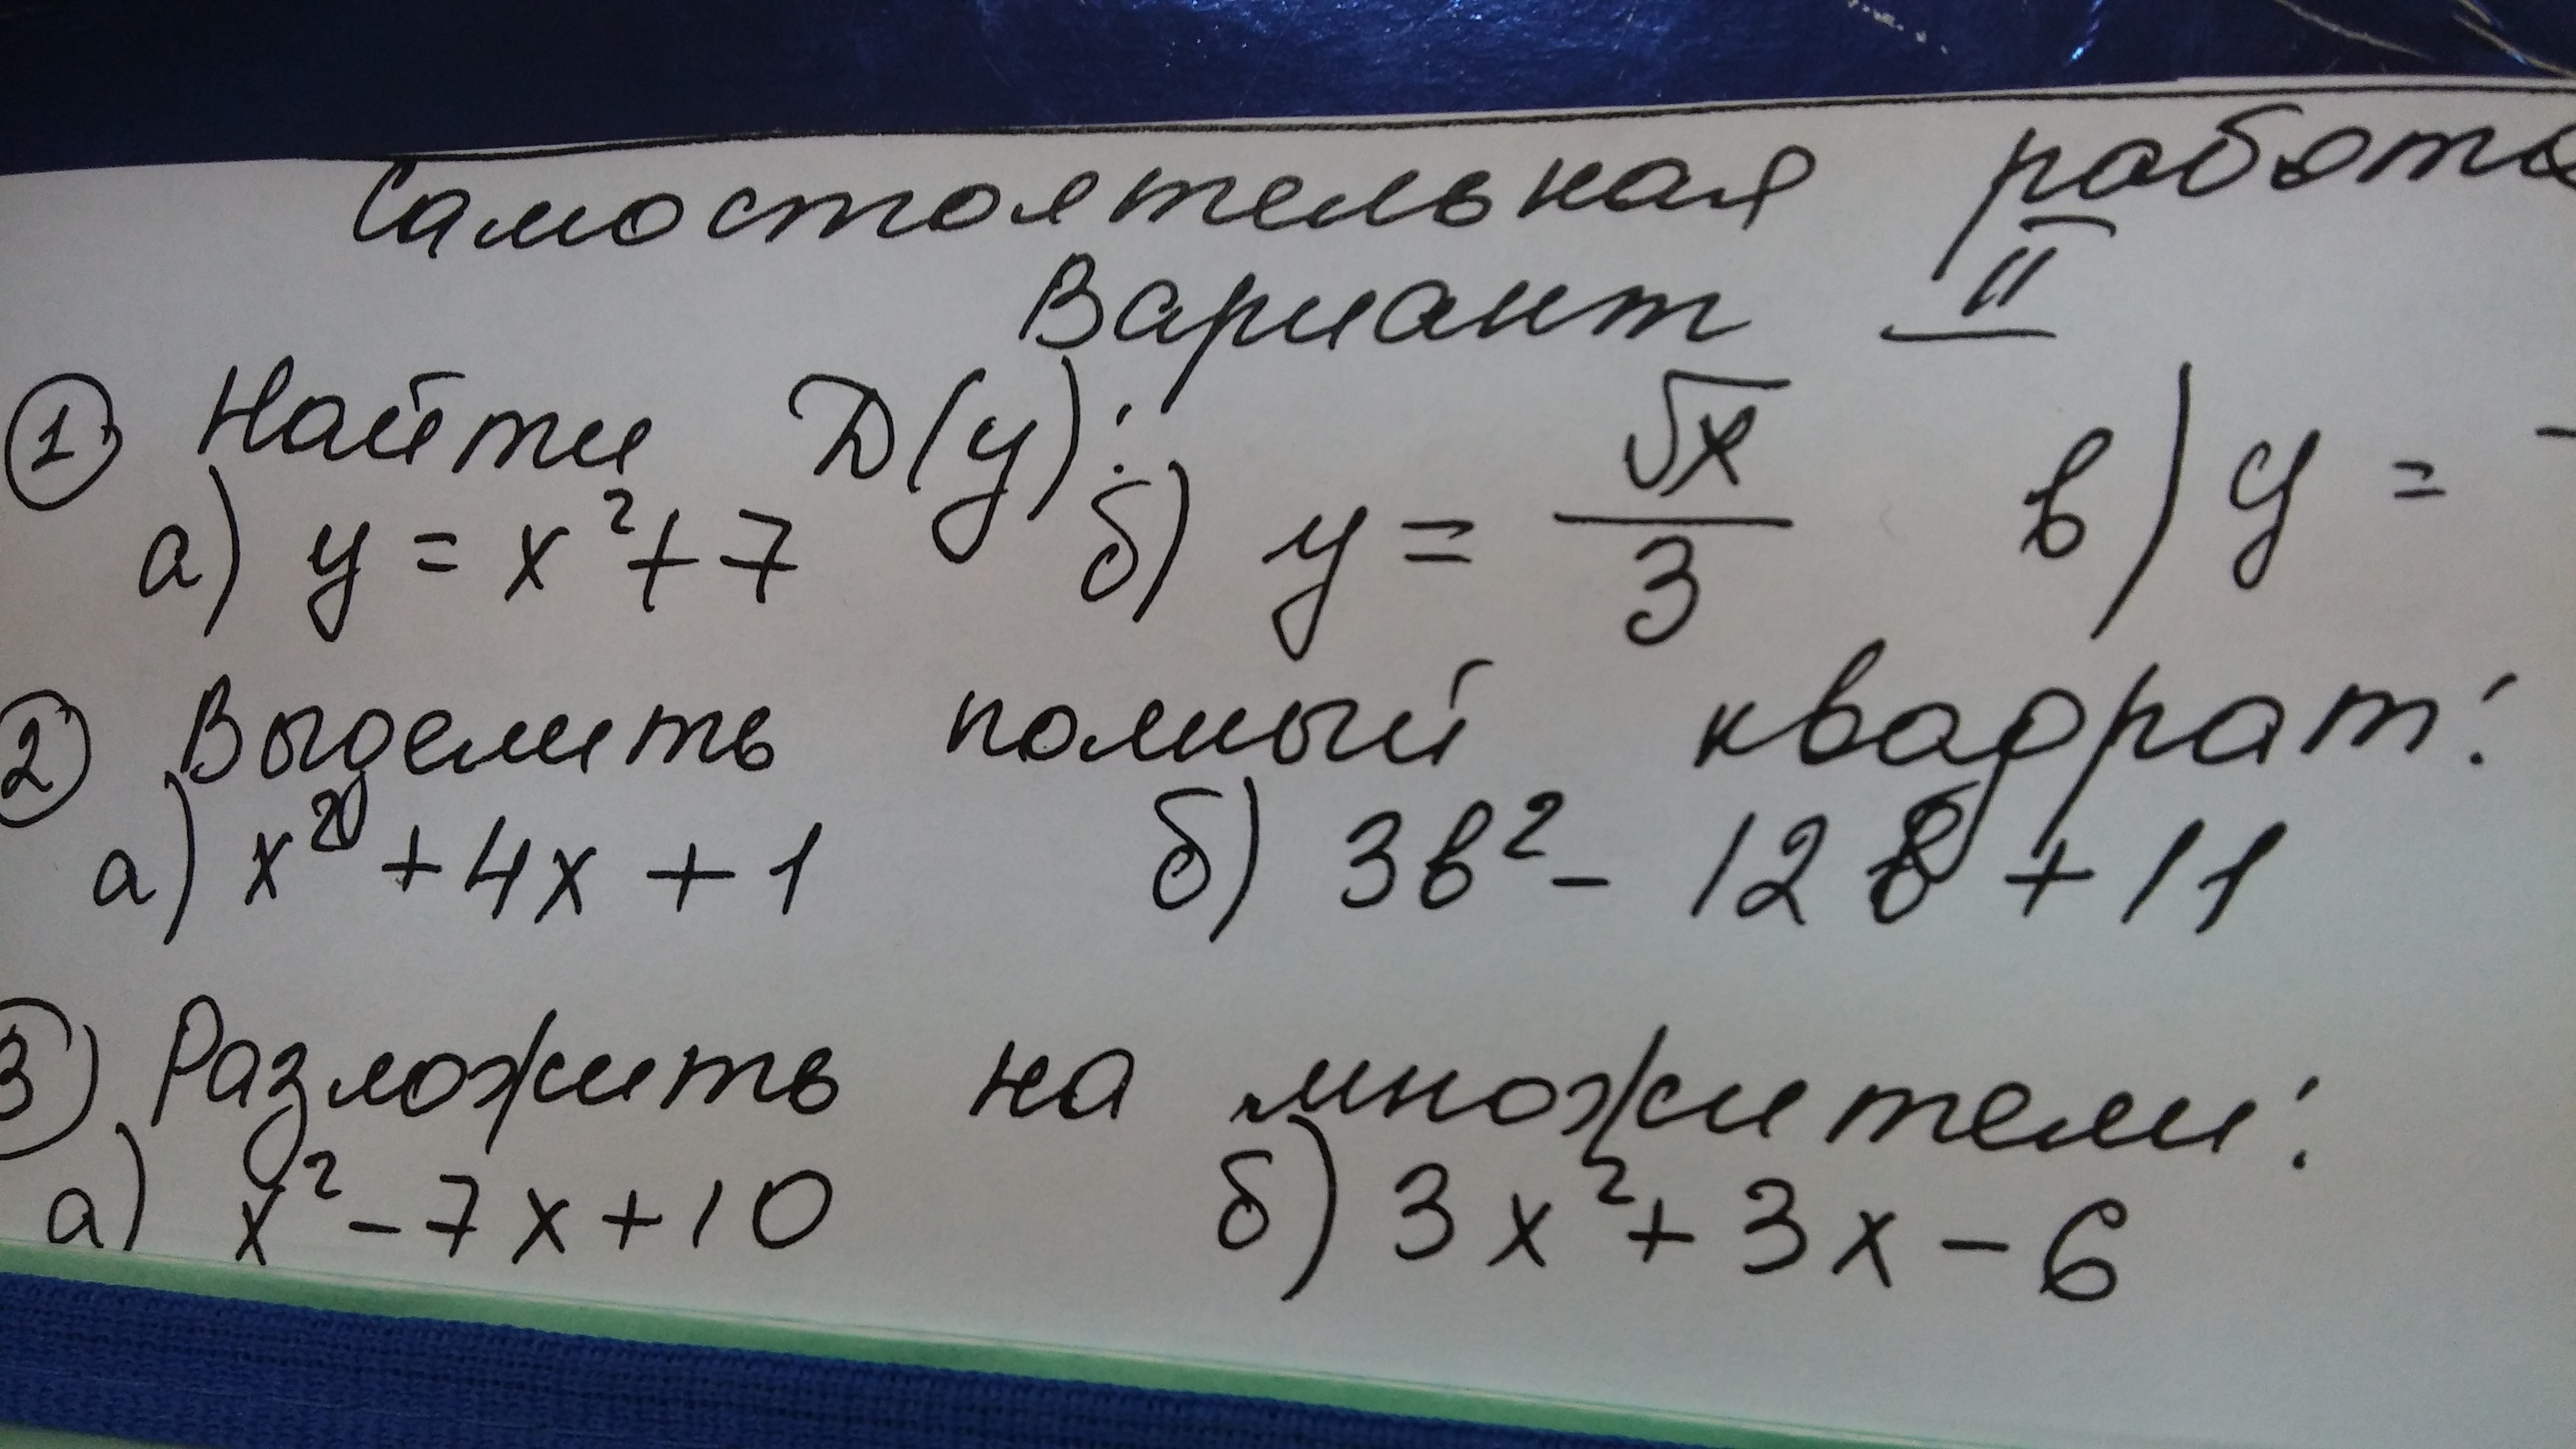 Самостоятельная работа
Вариант II
1) Найти D(y):
а) y = x² + 7 б) y = √x/3 в) y =
2) Выделить полный квадрат:
а) x² + 4x + 1 б) 3в² - 12в + 11
3) Разложить на множители:
а) x² - 7x + 10 б) 3x² + 3x - 6